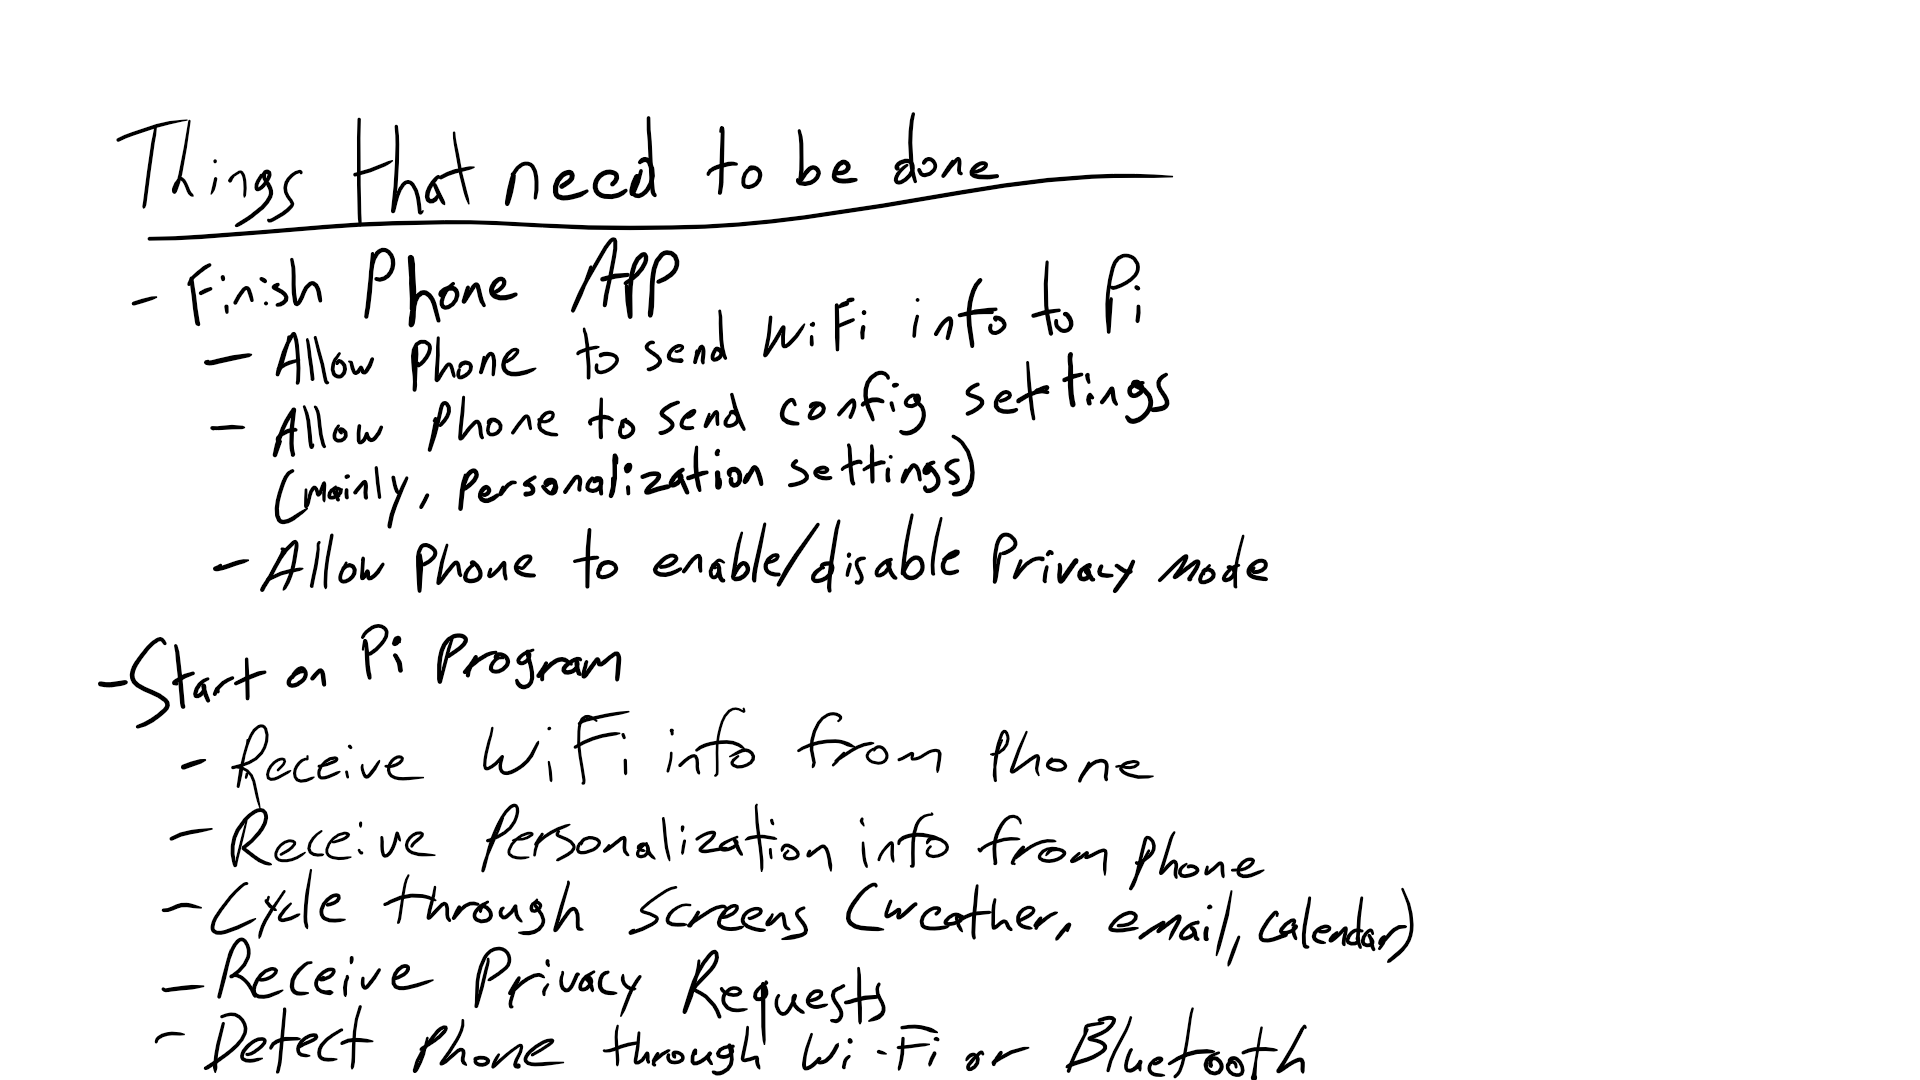 Things that need to be done
- Finish Phone App
- Allow Phone to send WiFi info to Pi
- Allow Phone to send config settings
(mainly, Personalization settings)
- Allow Phone to enable/disable Privacy Mode
- Start on Pi Program
- Receive WiFi info from Phone
- Receive Personalization info from Phone
- Cycle through Screens (weather, email, calendar)
- Receive Privacy Requests
- Detect Phone through Wi-Fi or Bluetooth